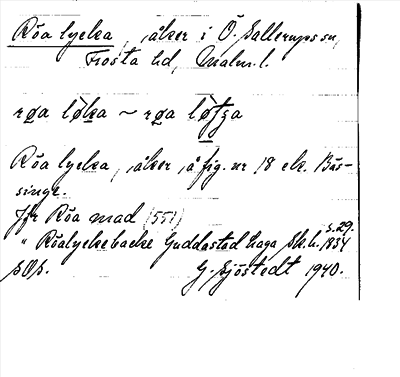 Röa lycka, åker i Ö. Sallerups sn,
Frosta hd, Malm. l.
røa løka ~ røa løtga
Röa lycka, åker å fig. nr 18 el. Bås-
singe.
Jfr Röa mad (551)
" Röalyckebacke Guddastad haga Sk. h. 1834 s. 29.
SOS. G. Sjöstedt 1940.